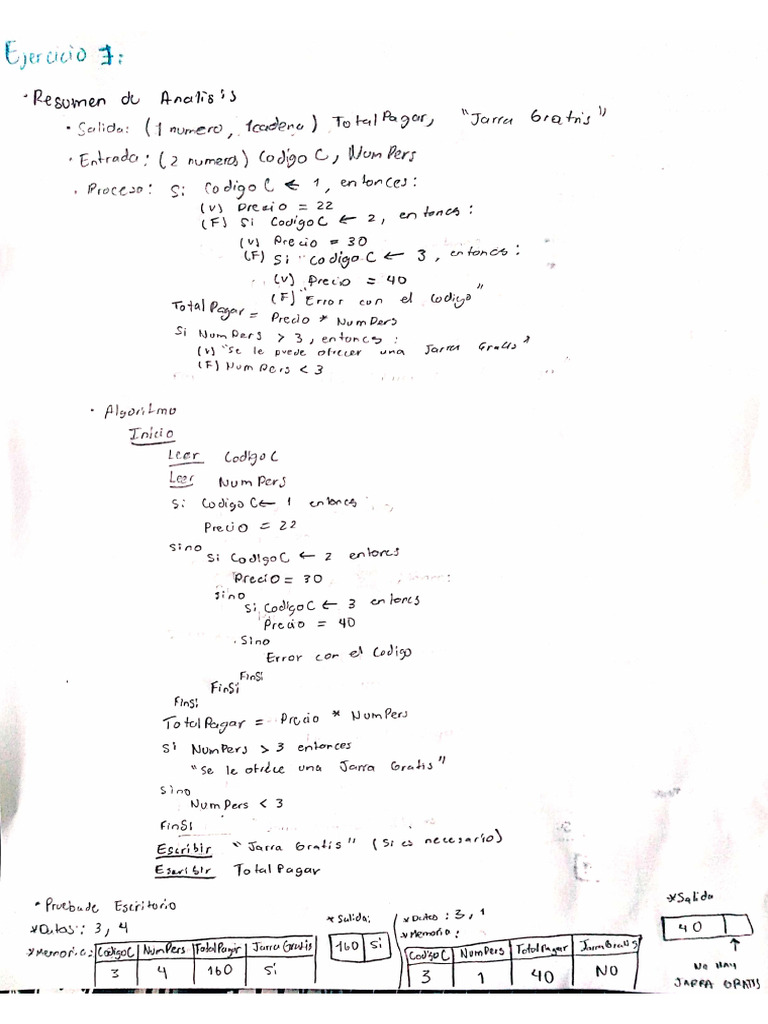 Ejercicio 7:
• Resumen de Analisis
• Salida: (1 numero, 1cadena) TotalPagar, "Jarra Gratis"
• Entrada: (2 numeros) Codigo C, NumPers
• Proceso: Si Codigo C ← 1, entonces:
(V) Precio = 22
(F) Si CodigoC ← 2, entonces:
(V) Precio = 30
(F) Si CodigoC ← 3, entonces:
(V) Precio = 40
(F) "Error con el codigo"
TotalPagar = Precio * NumPers
Si NumPers > 3, entonces:
(V) "Se le puede ofrecer una Jarra Gratis"
(F) NumPers < 3
• Algoritmo
Inicio
Leer CodigoC
Leer NumPers
Si CodigoC ← 1 entonces
Precio = 22
sino
Si CodigoC ← 2 entonces
Precio = 30
sino
Si CodigoC ← 3 entonces
Precio = 40
Sino
Error con el Codigo
FinSi
FinSi
FinSi
TotalPagar = Precio * NumPers
Si NumPers > 3 entonces
"Se le ofrece una Jarra Gratis"
Sino
NumPers < 3
FinSi
Escribir "Jarra Gratis" (Si es necesario)
Escribir TotalPagar
• Prueba de Escritorio
* Datos: 3, 4
* Memoria: CodigoC NumPers TotalPagar Jarra Gratis
3 4 160 Si
* Salida:
160 Si
* Datos: 3, 1
* Memoria:
CodigoC NumPers TotalPagar JarraGratis
3 1 40 NO
* Salida
40
NO HAY
JARRA GRATIS